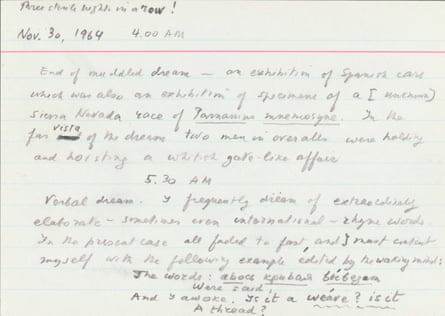 Three sterile nights in a row!
Nov. 30, 1964 4.00 AM
End of muddled dream — an exhibition of Spanish
which was also an exhibition of specimens of a [unknown]
Sierra Nevada race of Parnassius mnemosyne. In the
far vista of the dream two men in overalls were holding
and hoisting a whitish gate-like affair
5.30 AM
Verbal dream. I frequently dream of extraordinarily
elaborate – sometimes even international – rhyme words.
In the present case all faded too fast and I must content
myself with the following example edited by the waking mind:
The words: авось кривая
Were said
And I awoke. Is it a weave? is it
A thread?